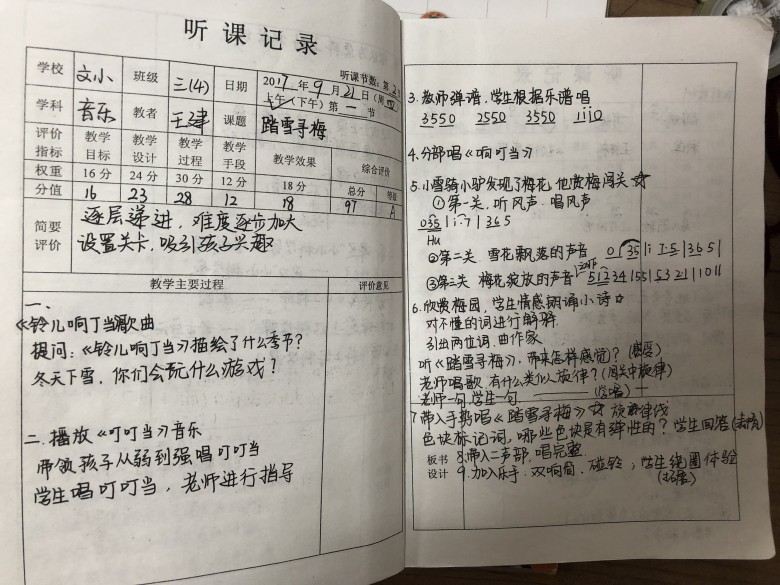 听课记录
听课节数:第2
学校 文小 班级 三(4) 日期 2017年9月21日(周四)
上午(下午)第一节
学科 音乐 教者 王建 课题 踏雪寻梅
评价指标 教学目标 教学设计 教学过程 教学手段 教学效果 综合评价
权重 16分 24分 30分 12分 18分 总分 等级
分值 16 23 28 12 18 97 A
简要评价 逐层递进,难度逐步加大
设置关卡,吸引孩子兴趣
教学主要过程 评价意见
一、
《铃儿响丁当》歌曲
提问:《铃儿响丁当》描绘了什么季节?
冬天下雪,你们会玩什么游戏?
二.播放《叮叮当》音乐
带领孩子从弱到强唱叮叮当
学生唱叮叮当,老师进行指导
3.教师弹谱,学生根据乐谱唱
3550 2550 3550 1110
4.分部唱《响叮当》
5.小雪骑小驴发现了梅花,他赏梅闯关☆
①第一关,听风声,唱风声
035|i·7|365
Hu
②第二关 雪花飘落的声音 0 35|i 7·5|365|
③第三关 梅花绽放的声音 51234|55|5321|1011
6.欣赏梅园,学生情感朗诵小诗☆
对不懂的词进行解释
引出两位词.曲作家
听《踏雪寻梅》,带来怎样感觉?(感受)
老师唱歌 有什么类似旋律?(闯关中旋律)
老师一句,学生一句.
7.带入手势唱《踏雪寻梅》☆ 旋律线
色块标记词,哪些色块是有弹性的?学生回答(表现)
板书设计
8.带入二声部.唱完整
9.加入乐手.双响筒.碰铃,学生绕圈体验
(拓展)